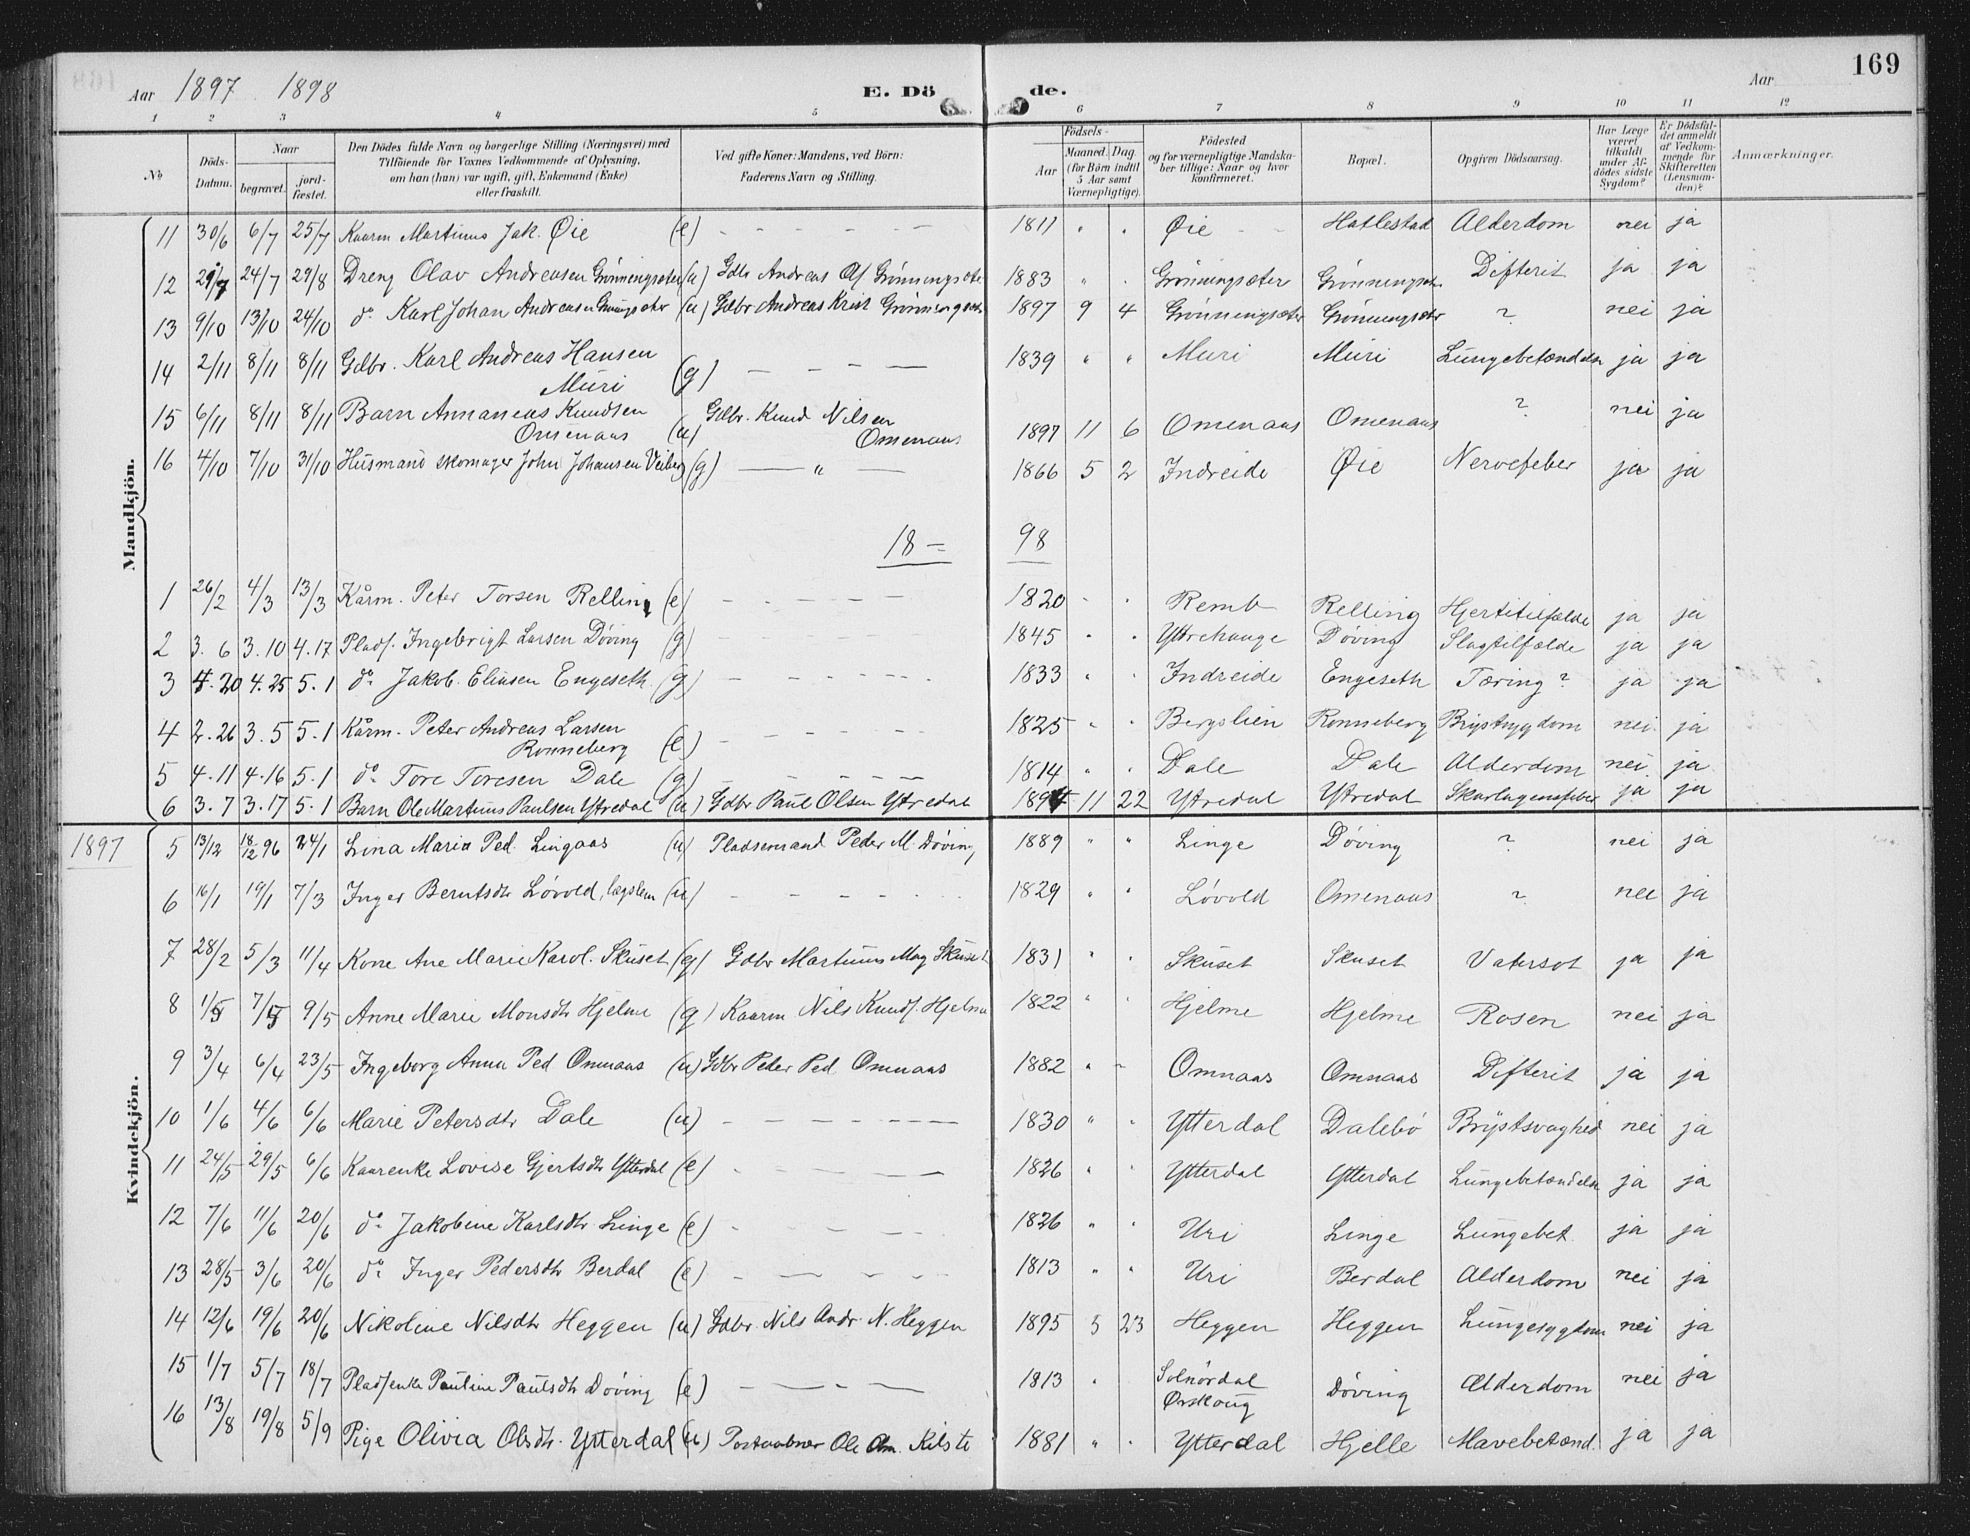 169
Aar 1897 1898 E. Dö de. Aar
1 2 3 4 5 6 7 8 9 10 11 12
№ Döds-Datum. Naar begravet. jordfæstet. Den Dödes fulde Navn og borgerlige Stilling (Næringsvei) med Tilföiende for Voxnes Vedkommende af Oplysning, om han (hun) var ugift, gift, Enkemand (Enke) eller fraskilt. Ved gifte Koner: Mandens, ved Börn: Faderens Navn og Stilling. Födsels- Aar Maaned. Dag. (for Börn indtil 5 Aar samt Værnepligtige). Födested og for værnepligtige Mandskaber tillige: Naar og hvor konfirmeret. Bopæl. Opgiven Dödsaarsag. Har Læge været tilkaldt under Afdödes sidste Sygdom? Er Dödsfaldet anmeldt af Vedkommende for Skifteretten (Lensmanden)? Anmærkninger.
Mandkjön.
11 30/6 6/7 25/7 Kaarm Martinus Jak. Øie (e) - - - 1811 " " Øie - - Hatlestad Alderdom nei ja
12 29/7 24/7 29/8 Dreng Olav Andreasen Grønningsæter (u) Gdbr Andreas Af Grønningsæter 1883 " " Grønningsæter Grønningsæt. Difterit ja ja
13 9/10 13/10 24/10 do Karl Johan Andreasen Grønningsæter (u) Gdbr Andreas Krist Grønningsæt 1897 9 4 Grønningsæter Grønningsæter ? nei ja
14 2/11 8/11 8/11 Gdbr. Karl Andreas Hansen
Muri (g) - - - 1839 " " Muri Muri Lungebetændelse ja ja
15 6/11 8/11 8/11 Barn Annaneas Knudsen
Omenaas (u) Gdbr. Knud Nilsen Omenaas 1897 11 6 Omenaas Omenaas ? nei ja
16 4/10 7/10 31/10 Husmand skomager John Johansen Veiberg (g) - " - 1866 5 2 Indreide Øie Nervefeber ja ja
18 = 98
1 26/2 4/3 13/3 Kårm. Peter Torsen Relling (e) - - - 1820 " " Remb Relling Hjertetilfælde ja ja
2 3. 6 3.10 4.17 Pladf. Ingebrigt Larsen Døving (g) - - - 1845 " " Yttrehauge Døving Slagtilfælde ja ja
3 4.20 4.25 5.1 do Jakob Eliasen Engeseth (g) - - - 1833 " " Indreide Engeseth Tæring? ja ja
4 2.26 3.5 5.1 Kårm. Peter Andreas Larsen
Ronneberg (e) - - - 1825 " " Bergslien Ronneberg Brystsygdom nei ja
5 4.11 4.16 5.1 do Tore Toresen Dale (g) - - - 1814 " " Dale Dale Alderdom nei ja
6 3.7 3.17 5.1 Barn Ole Martinus Paulsen Ytredal (u) Gdbr Paul Olsen Ytredal 1894 11 22 Ytredal Ytredal Skarlagensfeber ja ja
Kvindekjön.
1897 5 13/12 18/12 96 24/1 Lina Maria Ped. Lingaas (u) Pladsemand Peder M. Døving 1889 " " Linge Døving ? nei ja
6 16/1 19/1 7/3 Inger Berntsdtr Løvold, lægslem (u) - - - 1829 " " Løvold Omenaas ? nei ja
7 28/2 5/3 11/4 Kone Ane Marie Karol. Skuset (g) Gdbr Martinus Mag Skuset 1831 " " Skuset Skuset Vatersot ja ja
8 1/5 7/5 9/5 Anne Marie Monsdtr Hjelme (g) Kaarm Nils Knudf. Hjelme 1822 " " Hjelme Hjelme Rosen nei ja
9 3/4 6/4 23/5 Ingeborg Anna Ped Omnaas (u) Gdbr Peder Ped. Omnaas 1882 " " Omnaas Omnaas Difterit ja ja
10 1/6 4/6 6/6 Marie Petersdtr Dale (u) - - - 1830 " " Ytterdal Dalebø Brÿstsvaghed nei ja
11 24/5 29/5 6/6 Kaarenke Lovise Gjertsdtr Ytterdal (e) - - - 1826 " " Ytterdal Ytterdal Lungebetændelse ja ja
12 7/6 11/6 20/6 do Jakobine Karlsdtr Linge (e) - - - 1826 " " Uri Linge Lungebet. ja ja
13 28/5 3/6 20/6 do Inger Pedersdtr Berdal (e) - - - 1813 " " Uri Berdal Alderdom nei ja
14 12/6 19/6 20/6 Nikoline Nilsdtr Heggen (u) Gdbr. Nils Andr. N. Heggen 1895 5 23 Heggen Heggen Lungesygdom nei ja
15 1/7 5/7 18/7 Pladfenke Pauline Paulsdtr Døving (e) - - - 1813 " Solnørdal Ørskoug Døving Alderdom nei ja
16 13/8 19/8 5/9 Pige Olivia Olsdtr. Ytterdal (u) Postaabner Ole Om. Kilsti 1881 " " Ytterdal Hjelle Mavebetænd. ja ja